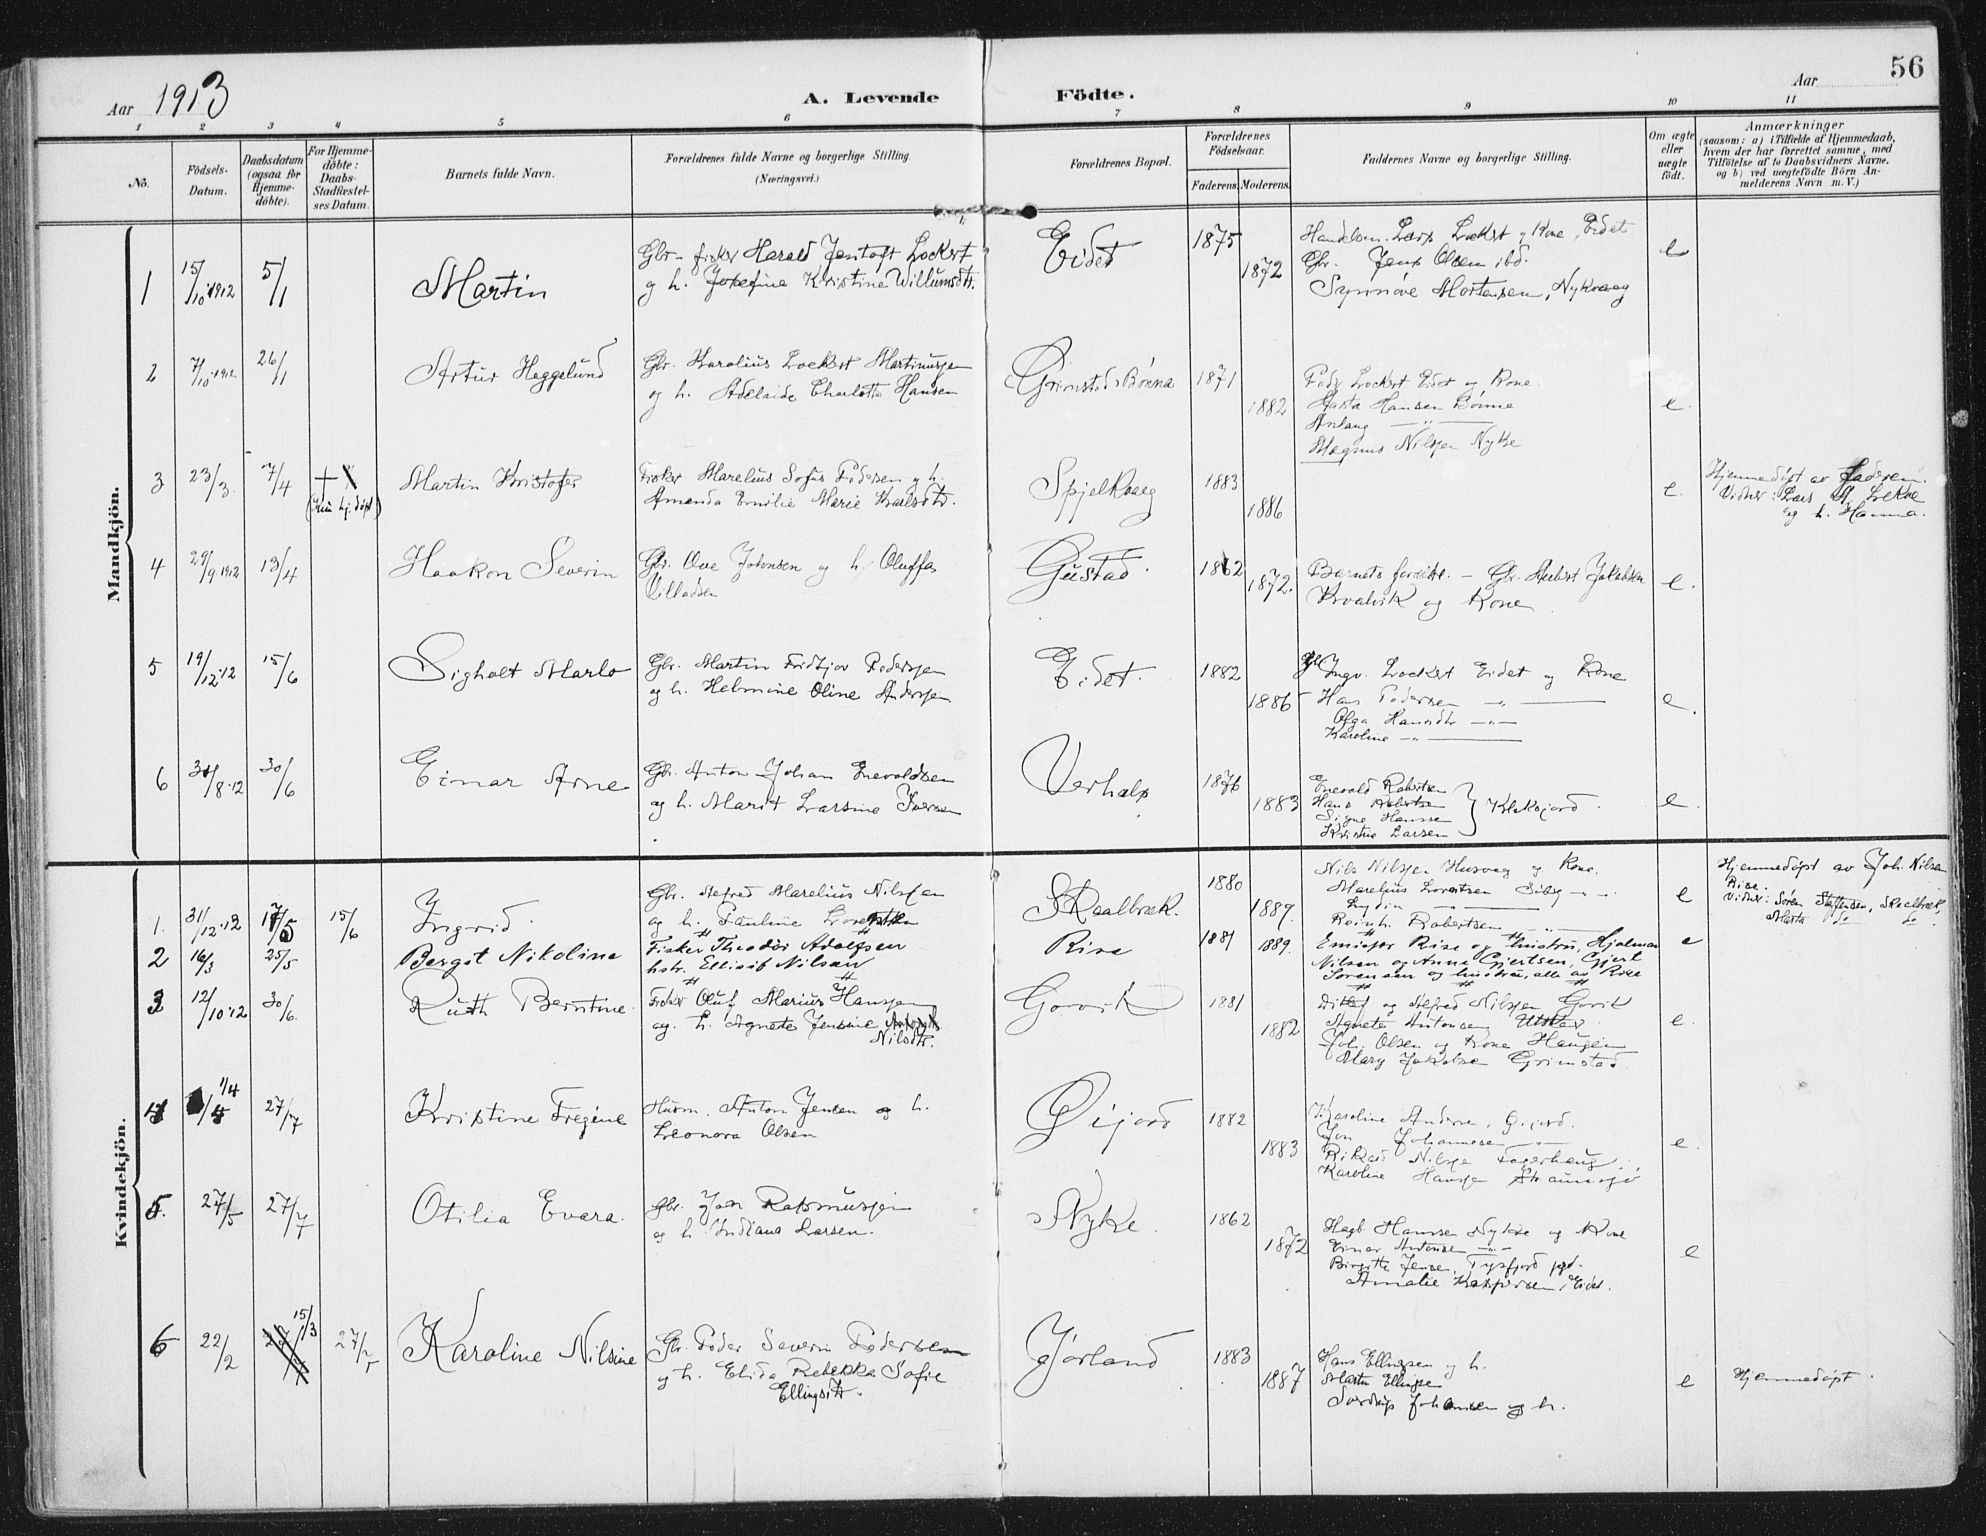 Aar 1913
A. Levende Födte.
Aar
56
1 2 3 4 5 6 7 8 9 10 11
No.
Födsels-
Datum.
Daabsdatum
(ogsaa for
Hjemme-
döbte).
For Hjemme-
döbte:
Daabs-
Stadfæstel-
ses Datum.
Barnets fulde Navn.
Forældrenes fulde Navne og borgerlige Stilling.
(Næringsvei.)
Forældrenes Bopæl.
Forældrenes
Födselsaar.
Faderens. Moderens.
Faddernes Navne og borgerlige Stilling.
Om ægte
eller
uægte
födt.
Anmærkninger
(saasom: a) i Tilfælde af Hjemmedaab,
hvem der har forrettet samme, med
Tilföielse af to Daabsvidners Navne.
og b) ved uægtefödte Börn An-
melderens Navn m. V.)
Mandkjön.
1 15/10 1912 5/1 Martin
Gbr- fisker Harald Jentoft Lockert
og h. Josefine Kristine Willumsdtr.
Eidet 1875 1872
Handelsm. Lars Lockert og Kone, Eidet
Gbr. Jens Olsen ibd.
Synnöve Mortensen, Nykvaag
e
2 7/10 1912 26/1 Artur Heggelund
Gbr. Karolius Lockert Martinusen
og h. Adelaide Charlotte Hansen
Grimstad Bönna 1871 1882
Peder Lockert Eidet og Kone.
Hansen Bönna
Magnus Nilsen Nyke
e.
3 23/3 7/4 Martin Kristofer
Fisker Marelius Sofus Pedersen og h.
Amanda Emilie Marie Karlsdtr.
Spjelkvaag 1883 1886
e.
Hjemmedøpt av Faderen.
Vidner: Lars
og h. Hanna.
4 29/9 1912 13/4 Haakon Severin
Gbr. Ove Johnsen og h. Oluffa
Villadsen
Gustad 1862 1872.
Barnets forældre. - Gbr. Jakobsen
Kvalvik og Kone
e.
5 19/12 12 15/6 Sigholt Marlo
Gbr. Martin Fridtjov Pedersen
og h. Helmine Oline Andersen
Eidet. 1882 1886
Ingv. Lockert Eidet og Kone
Hans Pedersen -"-
Olga Hansdtr -"-
Karoline -"-
e.
6 31/8 12 30/6 Einar Arne
Gbr. Anton Johan Enevoldsen
og h. Marit Larsine Iversen
Verhals 1876 1883
Enevold Robertsen
Hans Robertsen
Signe Hanssen
Kristine Larsen
Klaksjord.
e
Kvindekjön.
1. 31/12 12 17/5 15/6 Ingrid.
Gbr. Alfred Marelius Nilsen
og h. Pauline
Skaalbræk. 1880 1889.
Nils Nilsen Husvaag og Kone.
Marelius Lorentsen
Lydia
Reinh. Robertsen
e
Hjemmedøpt av Joh. Nilsen
Rise.
Vidner: Sören Steffensen, Skaalbræk,
Marta do do.
2 16/3 25/5 Bergit Nikolina
Fisker Theodor Adolfsen
hstr. Ellisif Nilsen
Rise 1881 1889.
Rise og hustru, Hjalmar
Nilsen og Anna Gjertsen, Gjert
Sörensen og hustru, alle av Rise
e
3 12/10 12 30/6. Ruth Berntine.
Fisker Oluf Marius Hansen
og. h. Agnete Jensine
Nilsdtr.
Govik 1881 1882
og Alfred Nilsen Govik
Agnete Antonsen
Joh. Olsen og Kone Haugen
Mary Jakobsen Grimstad
e.
4 1/4 27/7 Kristine Fregine
Husm. Anton Jensen og h.
Leonora Olsen
Øijord 1882 1883
Karoline Øijord.
Jon Johannesen -"-
Rikard Nilsen Fagerhaug
Karoline Hansen Straumsjö
e.
5. 27/5 27/7 Otilia Evara.
Gbr. Jon Rasmussen
og h. Indiana Larsen.
Nyke. 1862 1872
Hagb. Hanssen Nykse og Kone
Einar Antonsen -"-
Birgitte Jensen, Tysfjord
Amalie Kaspersen, Eidet.
e
6 22/2 15/3 27/7 Karoline Nilsine
Gbr. Peder Severin Pedersen
og h. Elida Rebekka Sofie
Ellingsdtr.
Jörland 1883 1887
Hans Ellingsen og h.
Martin Ellingsen
Johansen og h.
e
Hjemmedøpt.